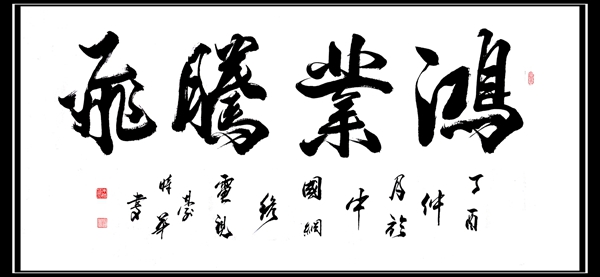 鴻業騰飛
丁酉仲月於中國網絡電視臺時華書